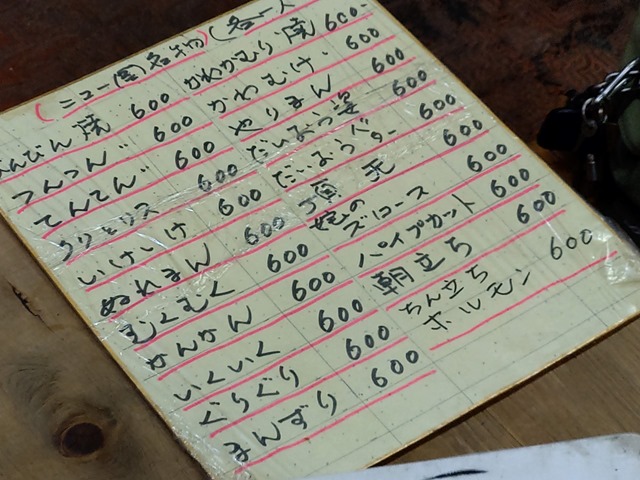 (ニュー(園)名物)(各一人
んびん焼 600
つんつん 600
てんてん 600
クリとリス 600
いけいけ 600
ぬれまん 600
むくむく 600
かんかん 600
いくいく 600
ぐらぐり 600
まんずり 600
かわかむり焼 600
かわむけ 600
やりまん 600
だいおう姿
だいおうバター 600
天 600
ズロース 600
パイプカット 600
朝立ち 600
ちん立ち
ホルモン 600